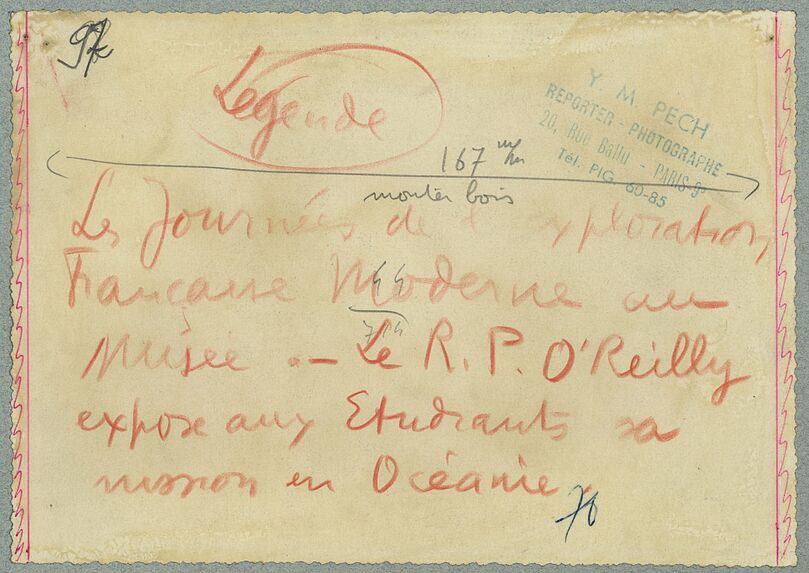 Legende
Y. M. PECH
REPORTER - PHOTOGRAPHE
20, Rue Ballu - PARIS-9e
Tél. PIG. 60-85
167 m/m
monter bois
Les Journées de l'exploration
Française Moderne au
Musée .— Le R. P. O'Reilly
expose aux Etudiants sa
mission en Océanie.
70